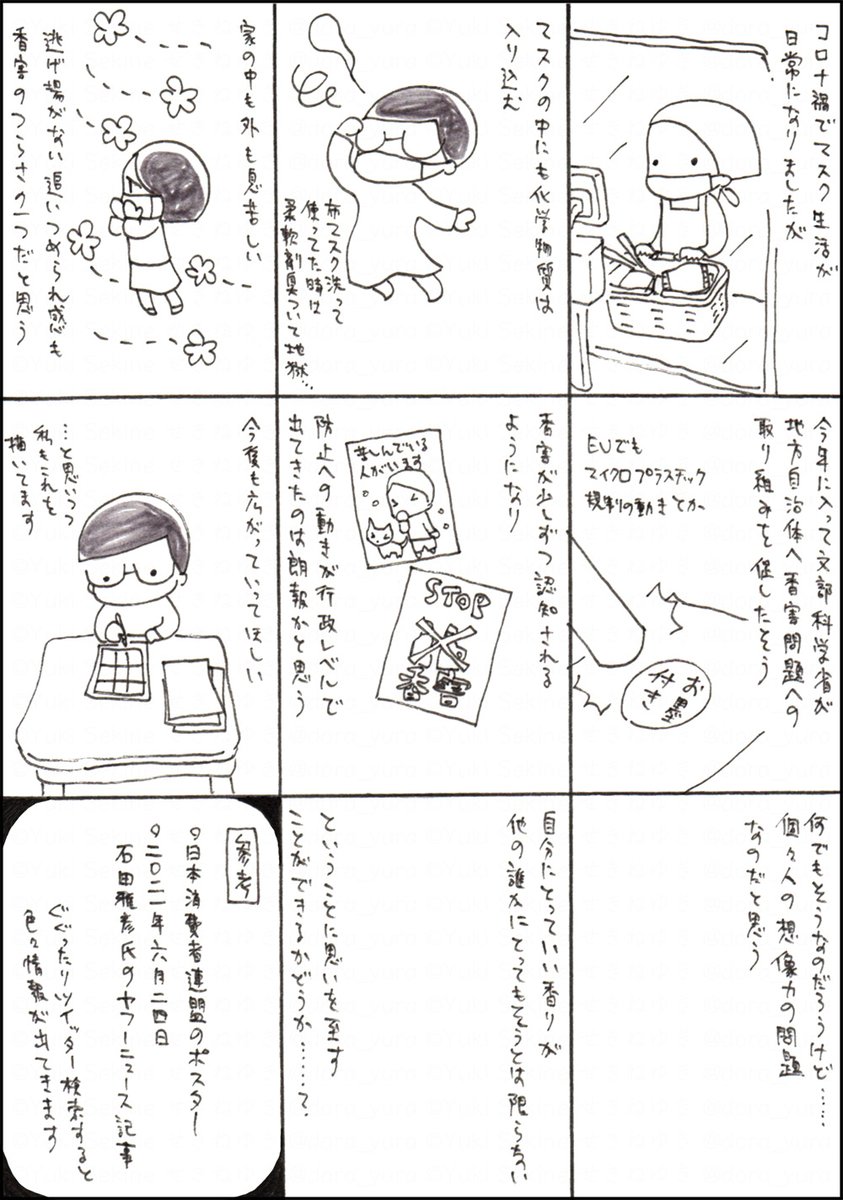 コロナ禍でマスク生活が
日常になりましたが
マスクの中にも化学物質は
入り込む
布マスク洗って
使ってた時は
柔軟剤臭ついて地獄…
家の中も外も息苦しい
逃げ場がない追いつめられ感も
香害のつらさの一つだと思う
今年に入って文部科学省が
地方自治体へ香害問題への
取り組みを促したそう
EUでも
マイクロプラスチック
規制の動きとか
お墨
付き
香害が少しずつ認知される
ようになり
苦しんでいる
人がいます
STOP
香害
防止への動きが行政レベルで
出てきたのは朗報かと思う
今後も広がっていてほしい
…と思いつつ
私もこれを
描いてます
何でもそうなのだろうけど……
個々人の想像力の問題
なのだと思う
自分にとっていい香りが
他の誰かにとってもそうとは限らない
ということに思いを至す
ことができるかどうか……？
参考
日本消費者連盟のポスター
二〇二一年六月二四日
石田雅彦氏のヤフーニュース記事
ぐぐったりツイッター検索すると
色々情報が出てきます
©Yuki Sekine せきねゆき @doro_yuro